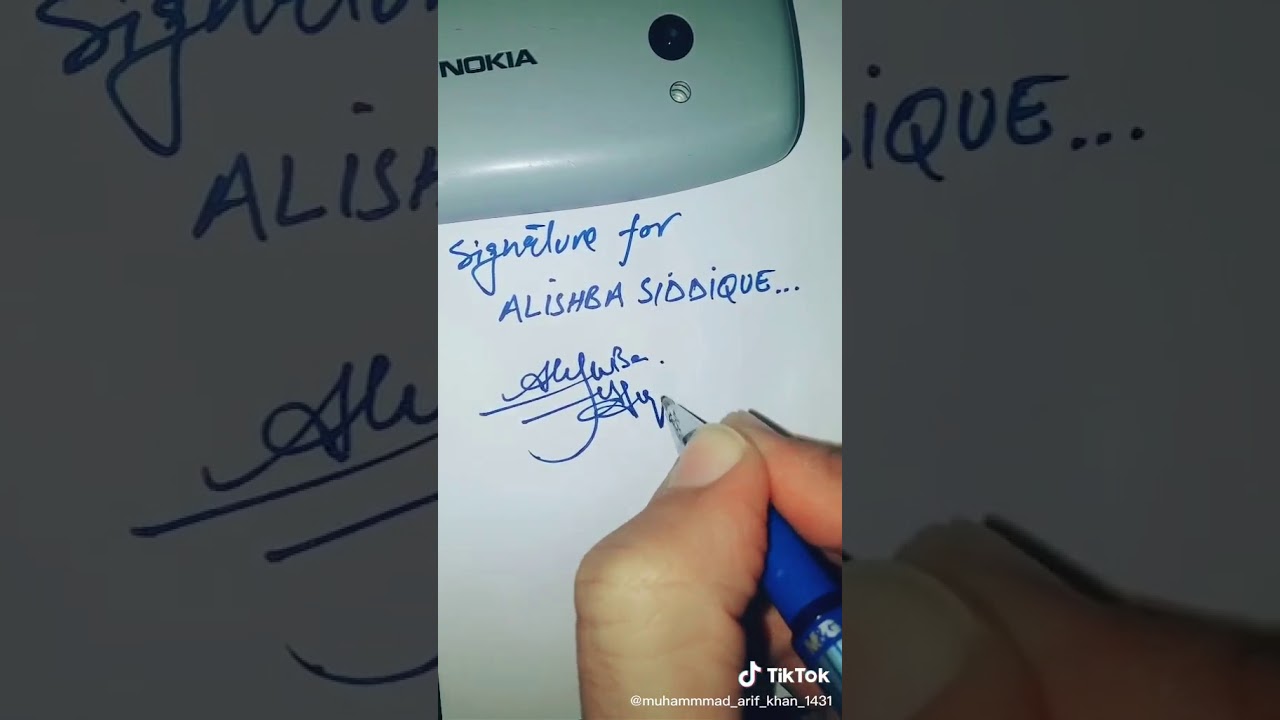 NOKIA
Signature for
ALISHBA SIDDIQUE...
Alishba.
TikTok
@muhammmad_arif_khan_1431